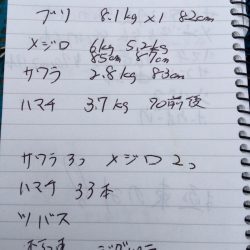 ブリ 8.1kg×1 82cm
メジロ 6kg 5.2kg
85cm 87cm
サワラ 2.8kg 83cm
ハマチ 3.7kg 70前後
サワラ 3つ メジロ 2つ
ハマチ 33本
ツバス